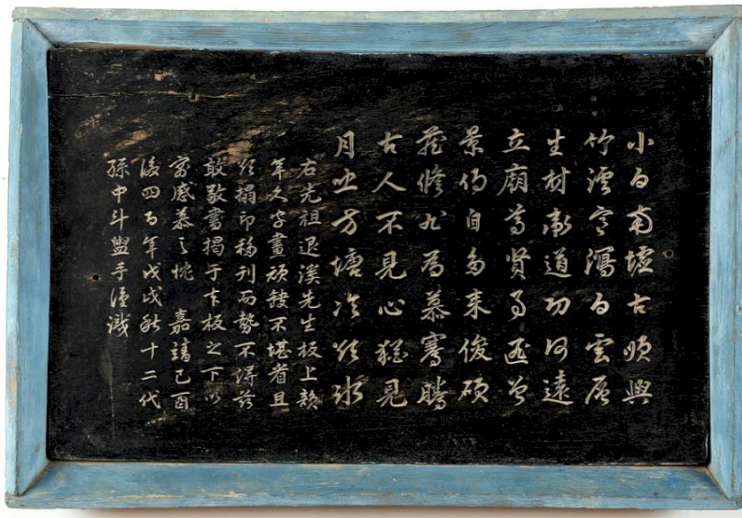 小白南墟古順興
竹溪寒瀉白雲層
生材衛道功何遠
立廟尊賢事匪曾
景仰自多來俊碩
藏修非爲慕騫騰
古人不見心猶見
月照方塘冷欲氷
右先祖退溪先生板上韻
年久字畫頑缺不堪省且
欲搨印移刊而勢不得玆
敢敬書揭于本板之下以
寓感慕之忱 嘉靖己酉
後四百年戊戌秋十二代
孫中斗盥手謹識